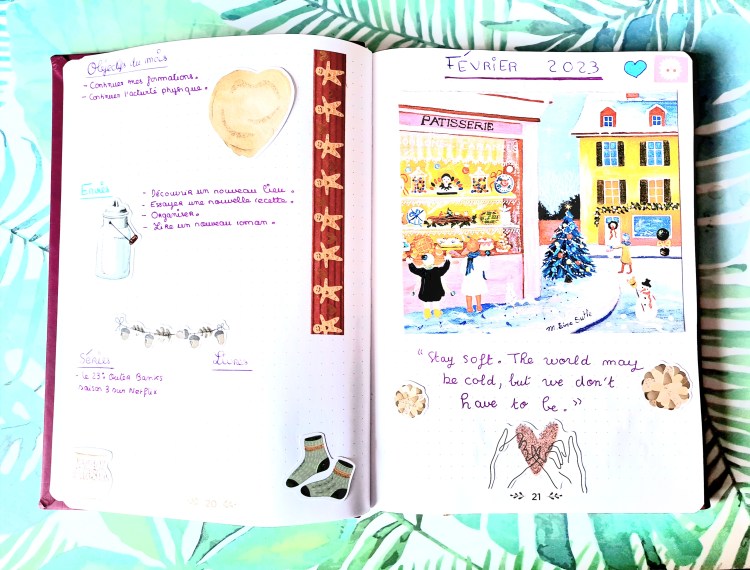 Objectifs du mois
- Continuer mes formations.
- Continuer l'activité physique.
Envies
- Découvrir un nouveau lieu.
- Essayer une nouvelle recette.
- Organiser.
- Lire un nouveau roman.
Séries
Livres
- le 23: Outer Banks
saison 3 sur Netflix
20
FÉVRIER 2023
PATISSERIE
"Stay soft. The world may
be cold, but we don't
have to be."
21